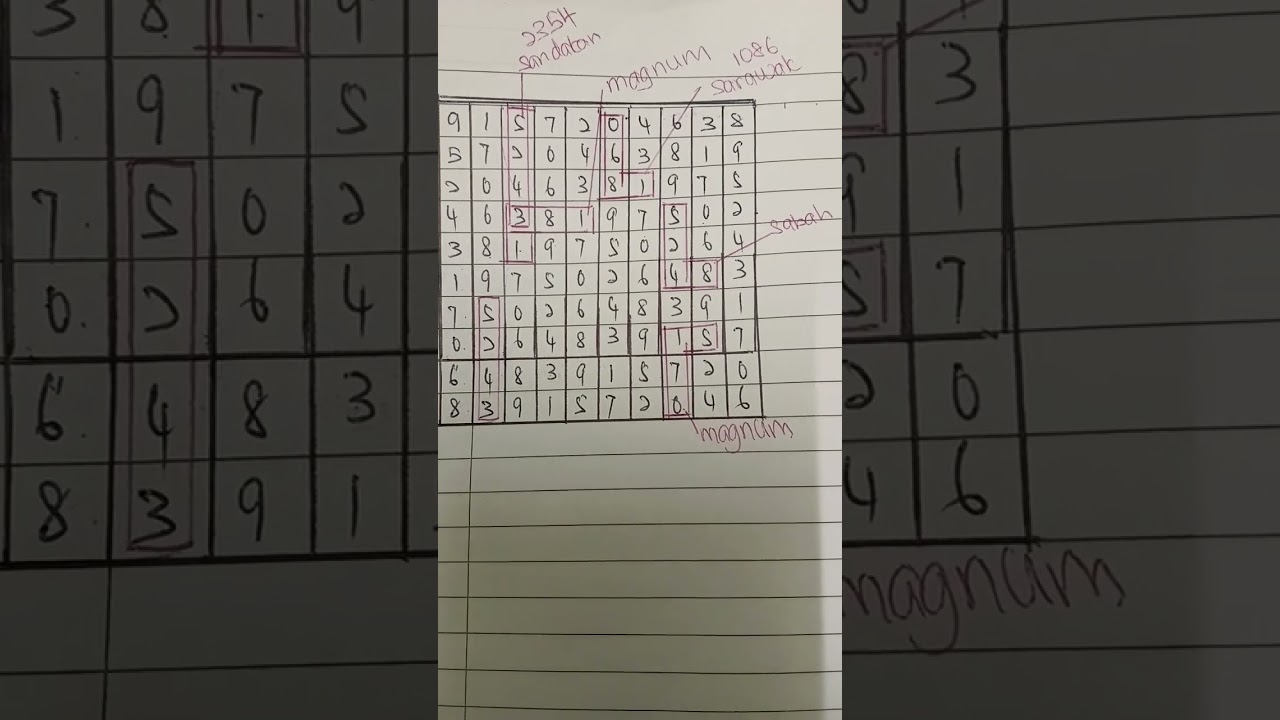 2354
sandakan
magnum
1086
sarawak
9 1 5 7 2 0 4 6 3 8
5 7 2 0 4 6 3 8 1 9
2 0 4 6 3 8 1 9 7 5
4 6 3 8 1 9 7 5 0 2
sabah
3 8 1 9 7 5 0 2 6 4
1 9 7 5 0 2 6 4 8 3
7 5 0 2 6 4 8 3 9 1
0 2 6 4 8 3 9 1 5 7
6 4 8 3 9 1 5 7 2 0
8 3 9 1 5 7 2 0 4 6
magnum